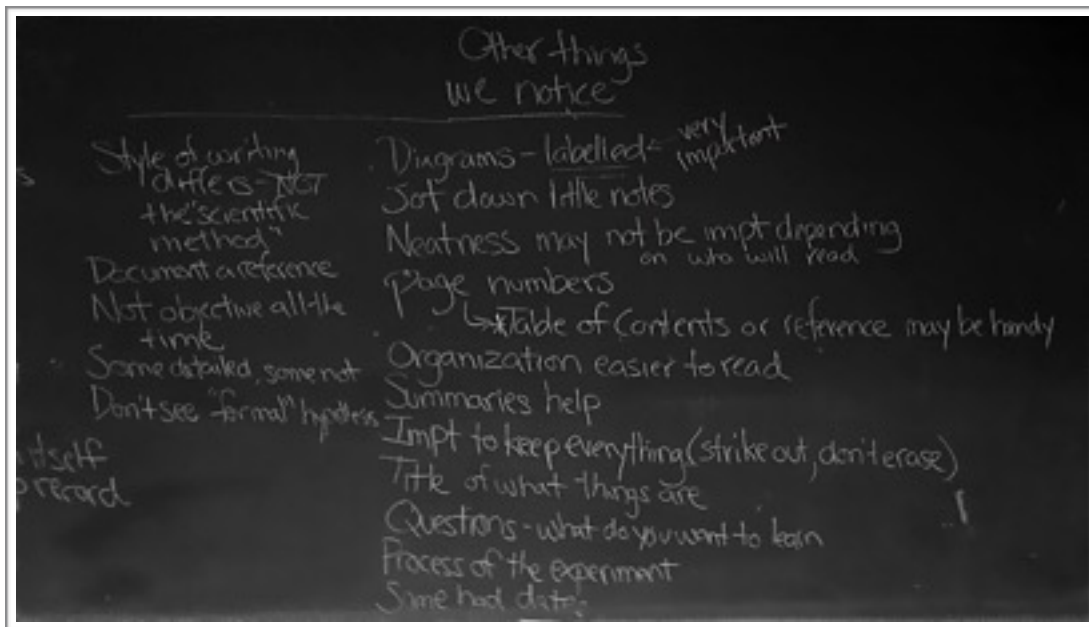 Other things
we notice
Style of writing
differs - NOT
the "scientific
method"
Document a reference
Not objective all the
time
Some detailed, some not
Don't see "formal" hypothesis
itself
record
Diagrams - labelled ← very
important
Jot down little notes
Neatness may not be impt depending
on who will read
page numbers
↳ *Table of Contents or reference may be handy
Organization easier to read
Summaries help
Impt to keep everything (strike out, don't erase)
Title of what things are
Questions - what do you want to learn
Process of the experiment
Some had date